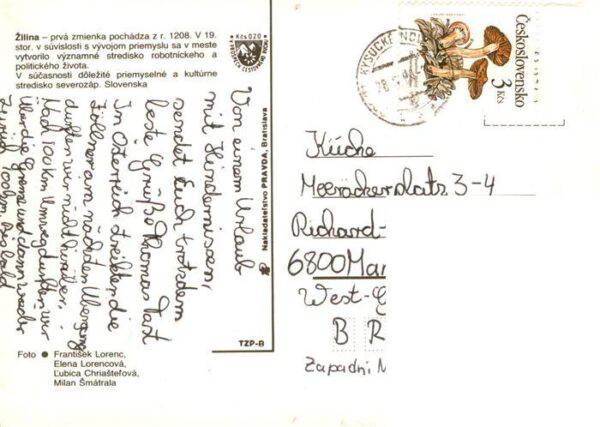 Žilina – prvá zmienka pochádza z r. 1208. V 19.
stor. v súvislosti s vývojom priemyslu sa v meste
vytvorilo významné stredisko robotníckeho a
politického života.
V súčasnosti dôležité priemyselné a kultúrne
stredisko severozáp. Slovenska
Kčs 0,20
Von einem Urlaub
mit Hindernissen,
sendet Euch trotzdem
beste Grüße Thomas
In Österreich streikten die
Zöllner am nächsten Übergang
durften wir nicht rüber,
Nach 100 km Umweg durften wir
über die Grenze und dann wieder
zurück 100 km,
Foto ● František Lorenc,
Elena Lorencová,
Ľubica Chriašteľová,
Milan Šmátrala
Nakladateľstvo PRAVDA, Bratislava
TZP-B
KYSUCKÉ NO
Československo
3 Kčs
Küche
Meeräckerplatz 3-4
Richard-
6800 Man
West-G
B R
Zapadni N